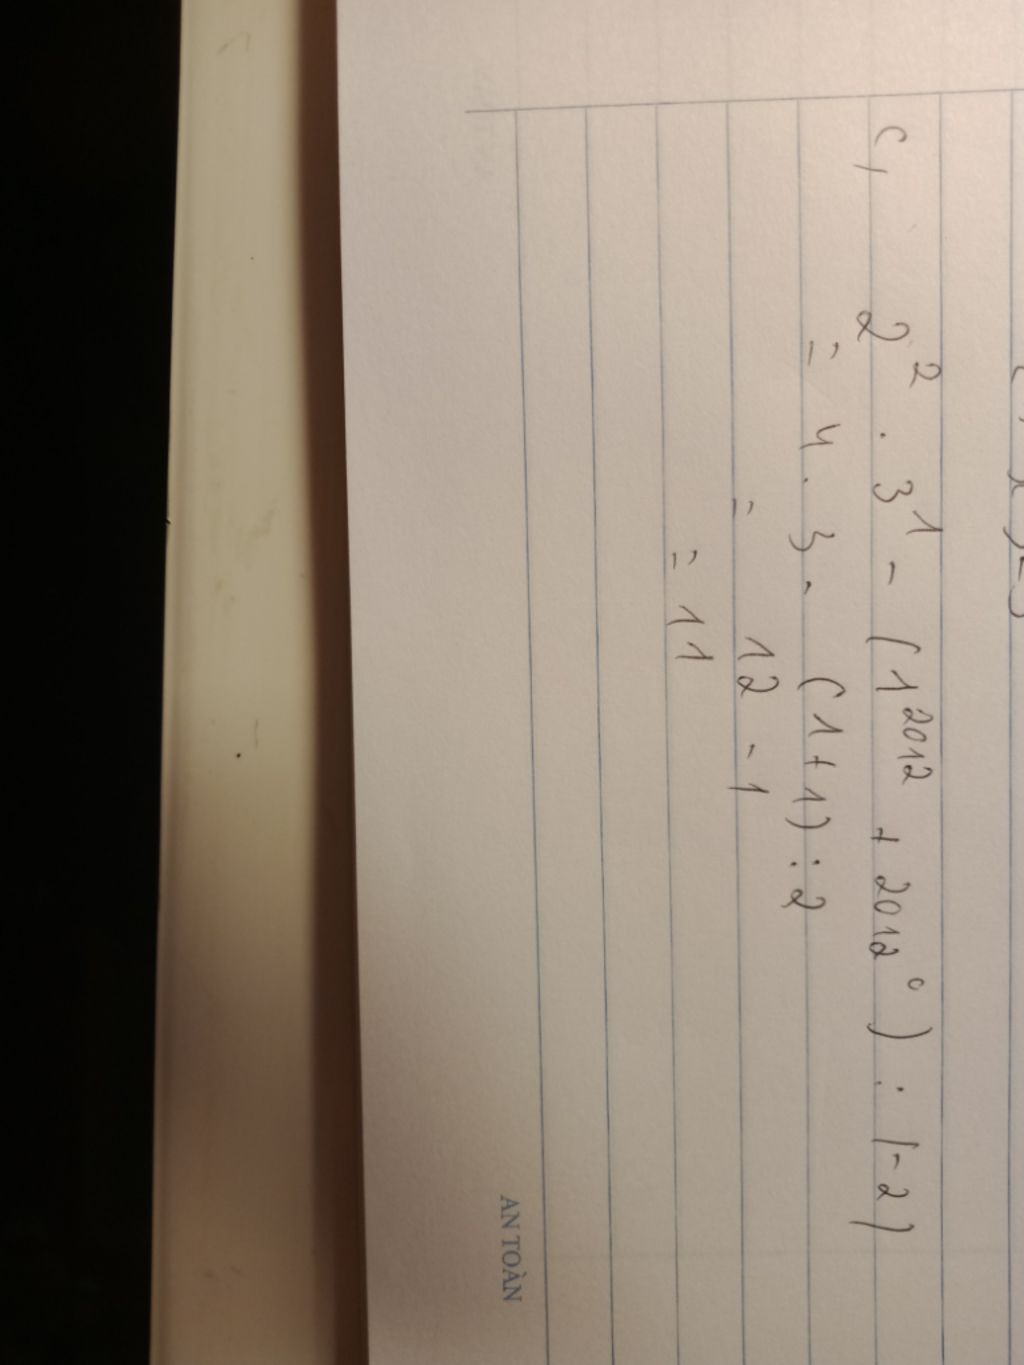 c, 2² . 3¹ - (1²⁰¹² + 2012⁰) : |-2|
= 4 . 3 - (1+1) : 2
= 12 - 1
= 11
AN TOÀN